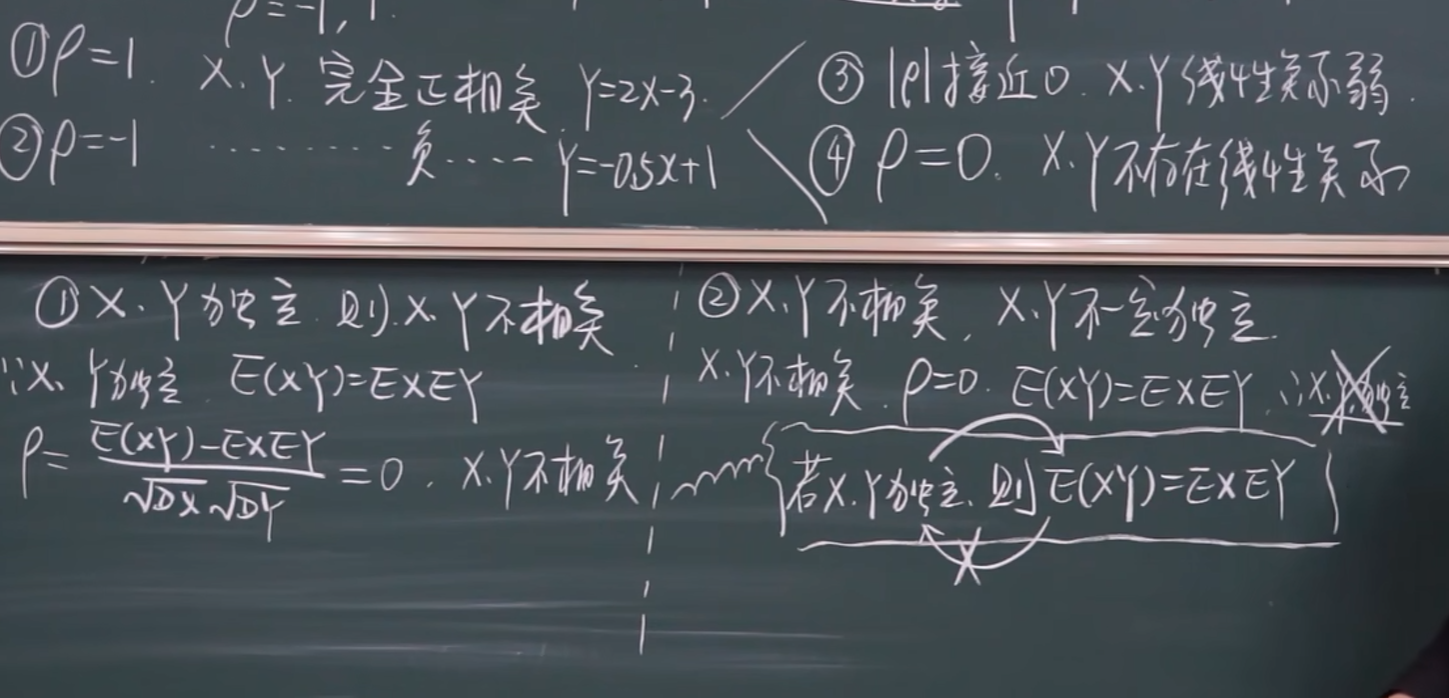 ρ=-1, 1.
①ρ=1. X.Y. 完全正相关 Y=2X-3.
②ρ=-1 ········· 负···· Y=-0.5X+1
③ |ρ|接近0. X.Y线性关系弱.
④ ρ=0. X.Y不存在线性关系
①X.Y独立.则.X.Y不相关
∵X.Y独立. E(XY)=EXEY
ρ=\frac{E(XY)-EXEY}{\sqrt{DX}\sqrt{DY}}=0. X.Y不相关
②X.Y不相关, X.Y不一定独立.
X.Y不相关. ρ=0. E(XY)=EXEY. ∵X.Y独立
若X.Y独立.则E(XY)=EXEY